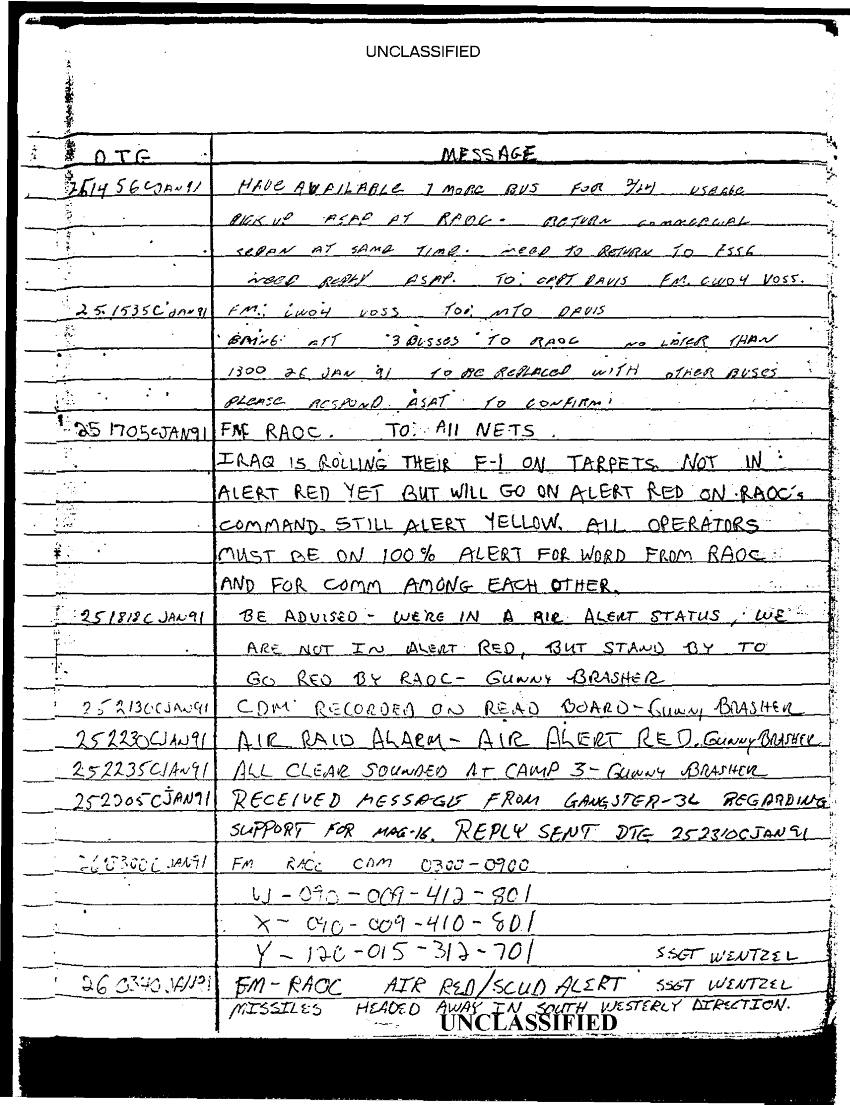 UNCLASSIFIED
DTG MESSAGE
251456CJAN91 HAVE AVAILABLE 1 MORE BUS FOR USAGE
PICK UP ASAP AT RAOC. RETURN COMMERCIAL
SEDAN AT SAME TIME. NEED TO RETURN TO FSSG
NEED REPLY ASAP. TO: CAPT DAVIS FM. CWO4 VOSS.
251535CJAN91 FM: CWO4 VOSS TO: MTO DAVIS
BRING ATT 3 BUSSES TO RAOC NO LATER THAN
1300 26 JAN 91 TO BE REPLACED WITH OTHER BUSES
PLEASE RESPOND ASAT TO CONFIRM!
251705CJAN91 FM RAOC. TO: All NETS.
IRAQ IS ROLLING THEIR F-1 ON TARPETS. NOT IN
ALERT RED YET BUT WILL GO ON ALERT RED ON RAOC's
COMMAND. STILL ALERT YELLOW. ALL OPERATORS
MUST BE ON 100% ALERT FOR WORD FROM RAOC
AND FOR COMM AMONG EACH OTHER.
251818C JAN91 BE ADVISED - WE'RE IN A AIR ALERT STATUS, WE
ARE NOT IN ALERT RED, BUT STAND BY TO
GO RED BY RAOC- GUNNY BRASHER
252130CJAN91 CDM RECORDED ON READ BOARD-GUNNY BRASHER
252230CJAN91 AIR RAID ALARM- AIR ALERT RED. GUNNY BRASHER
252235CJAN91 ALL CLEAR SOUNDED AT CAMP 3- GUNNY BRASHER
252305CJAN91 RECEIVED MESSAGE FROM GANGSTER-36 REGARDING
SUPPORT FOR MAG-16. REPLY SENT DTG 252310CJAN91
260300C JAN91 FM RAOC CDM 0300-0900
W - 090 - 009 - 412 - 801
X - 090 - 009 - 410 - 801
Y - 120 - 015 - 312 - 701 SSGT WENTZEL
26 0340 JAN91 FM - RAOC AIR RED/SCUD ALERT SSGT WENTZEL
MISSILES HEADED AWAY IN SOUTH WESTERLY DIRECTION.
UNCLASSIFIED